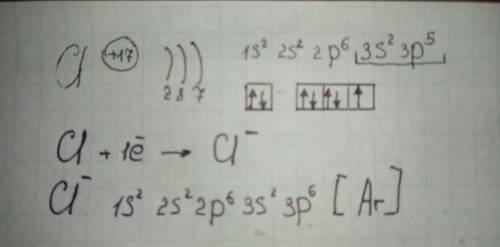 Cl +17 ))) 1s² 2s² 2p⁶ 3s² 3p⁵
2 8 7 ↑↓ ↑↓ ↑↓ ↑
Cl + 1ē → Cl⁻
Cl⁻ 1s² 2s² 2p⁶ 3s² 3p⁶ [Ar]